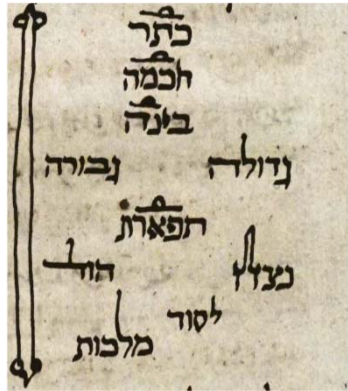 כתר
חכמה
בינה
גדולה גבורה
תפארת
נצח הוד
יסוד
מלכות